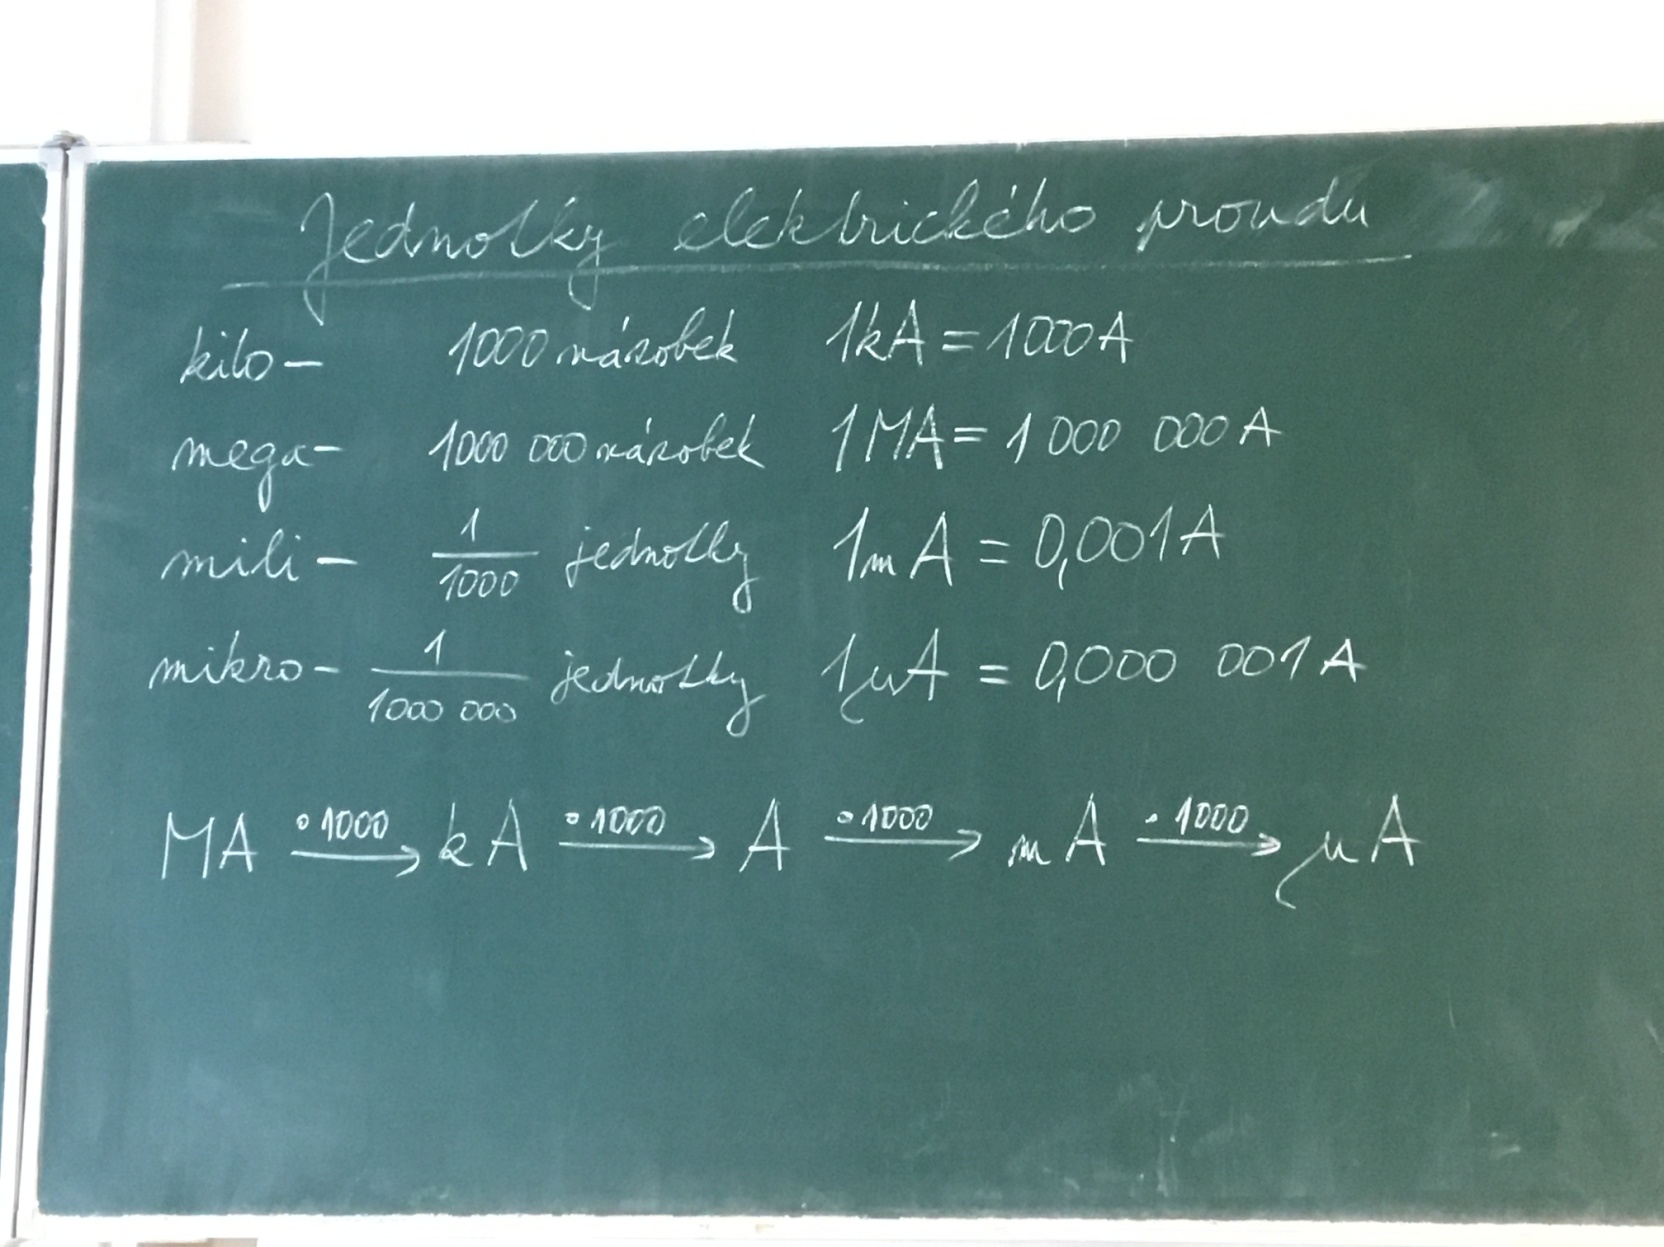 Jednotky elektrického proudu
kilo- 1000 násobek 1kA = 1000A
mega- 1000 000 násobek 1MA = 1 000 000 A
mili- 1/1000 jednotky 1mA = 0,001A
mikro- 1/1000 000 jednotky 1μA = 0,000 001 A
MA ·1000→ kA ·1000→ A ·1000→ mA ·1000→ μA